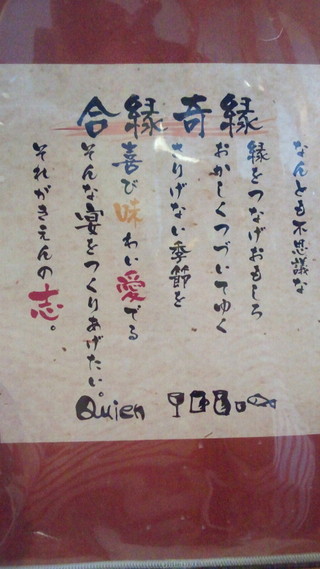 合縁奇縁
なんとも不思議な
縁をつなげおもしろ
おかしくつづいてゆく
さりげない季節を
喜び味わい愛でる
そんな宴をつくりあげたい。
それがきえんの志。
Quien